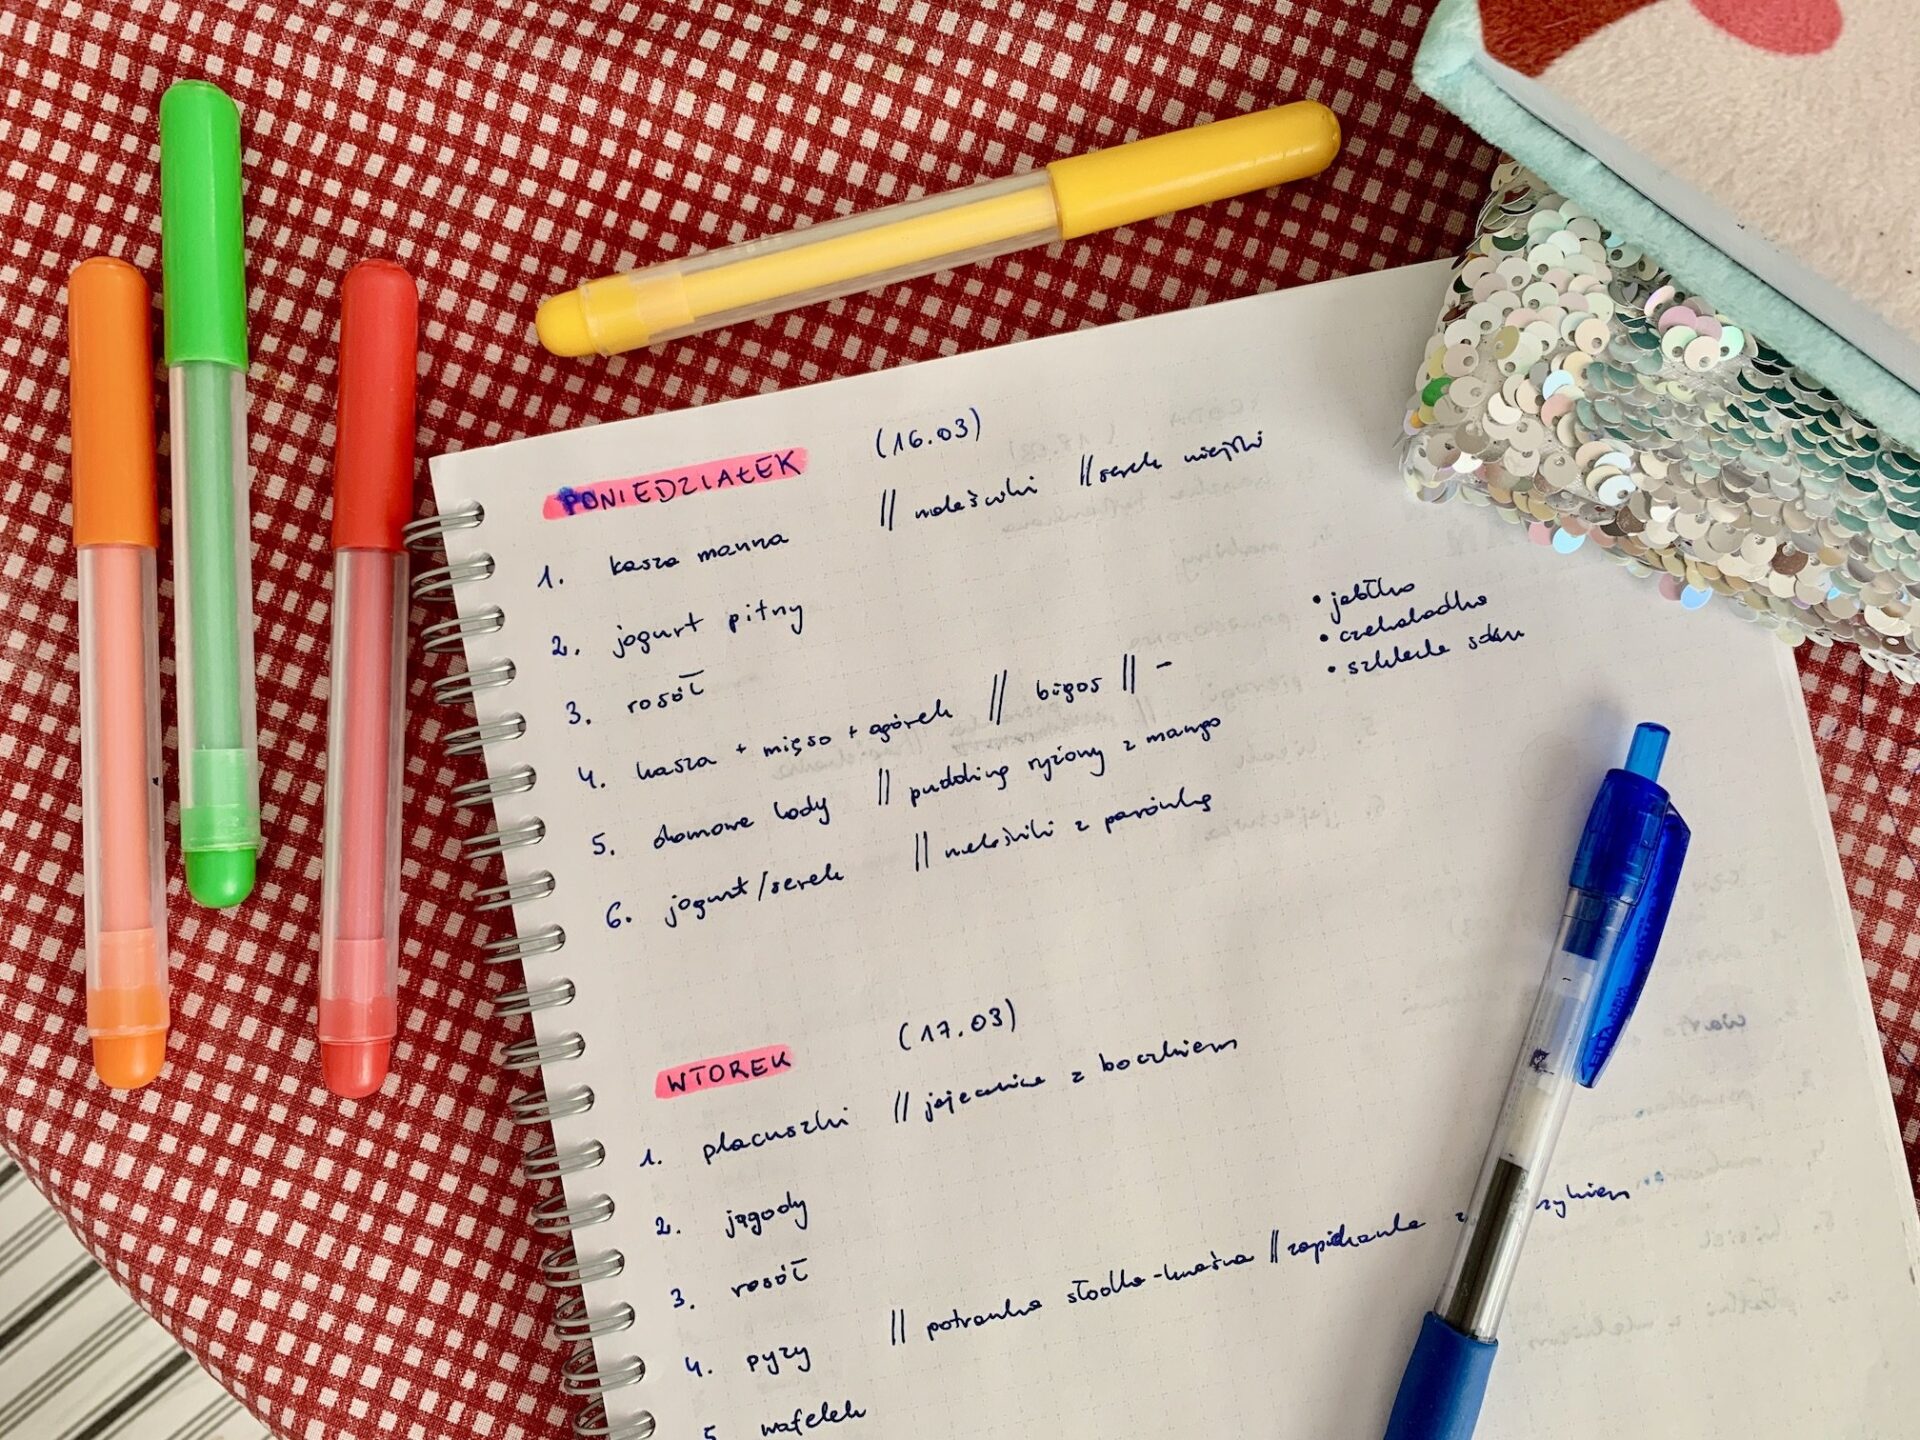 PONIEDZIAŁEK (16.03)
1. kasza manna // naleśniki // serek wiejski
2. jogurt pitny
• jabłko
• czekoladka
• szklanka soku
3. rosół
4. kasza + mięso + ogórek // bigos // -
5. domowe lody // pudding ryżowy z mango
6. jogurt/serek // naleśniki z parówką
WTOREK (17.03)
1. placuszki // jajecznica z boczkiem
2. jagody
3. rosół
4. pyzy // potrawka słodko-kwaśna // zapiekanka z
5. wafelek